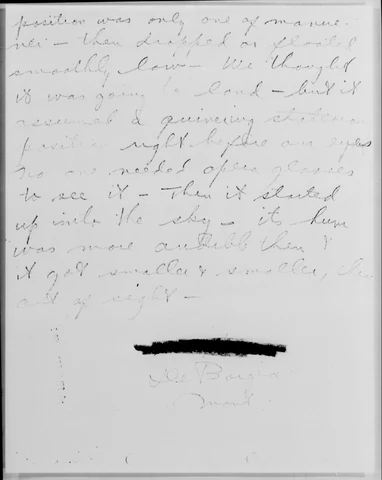 position was only one of maneu-
ver - then dropped or floated
smoothly low - We thought
it was going to land - but it
assumed a quivering stationary
position right before our eyes
no one needed opera glasses
to see it - Then it started
up into the sky - its hum
was more audible then &
it got smaller & smaller, then
out of sight -
De Borgia
Mont.